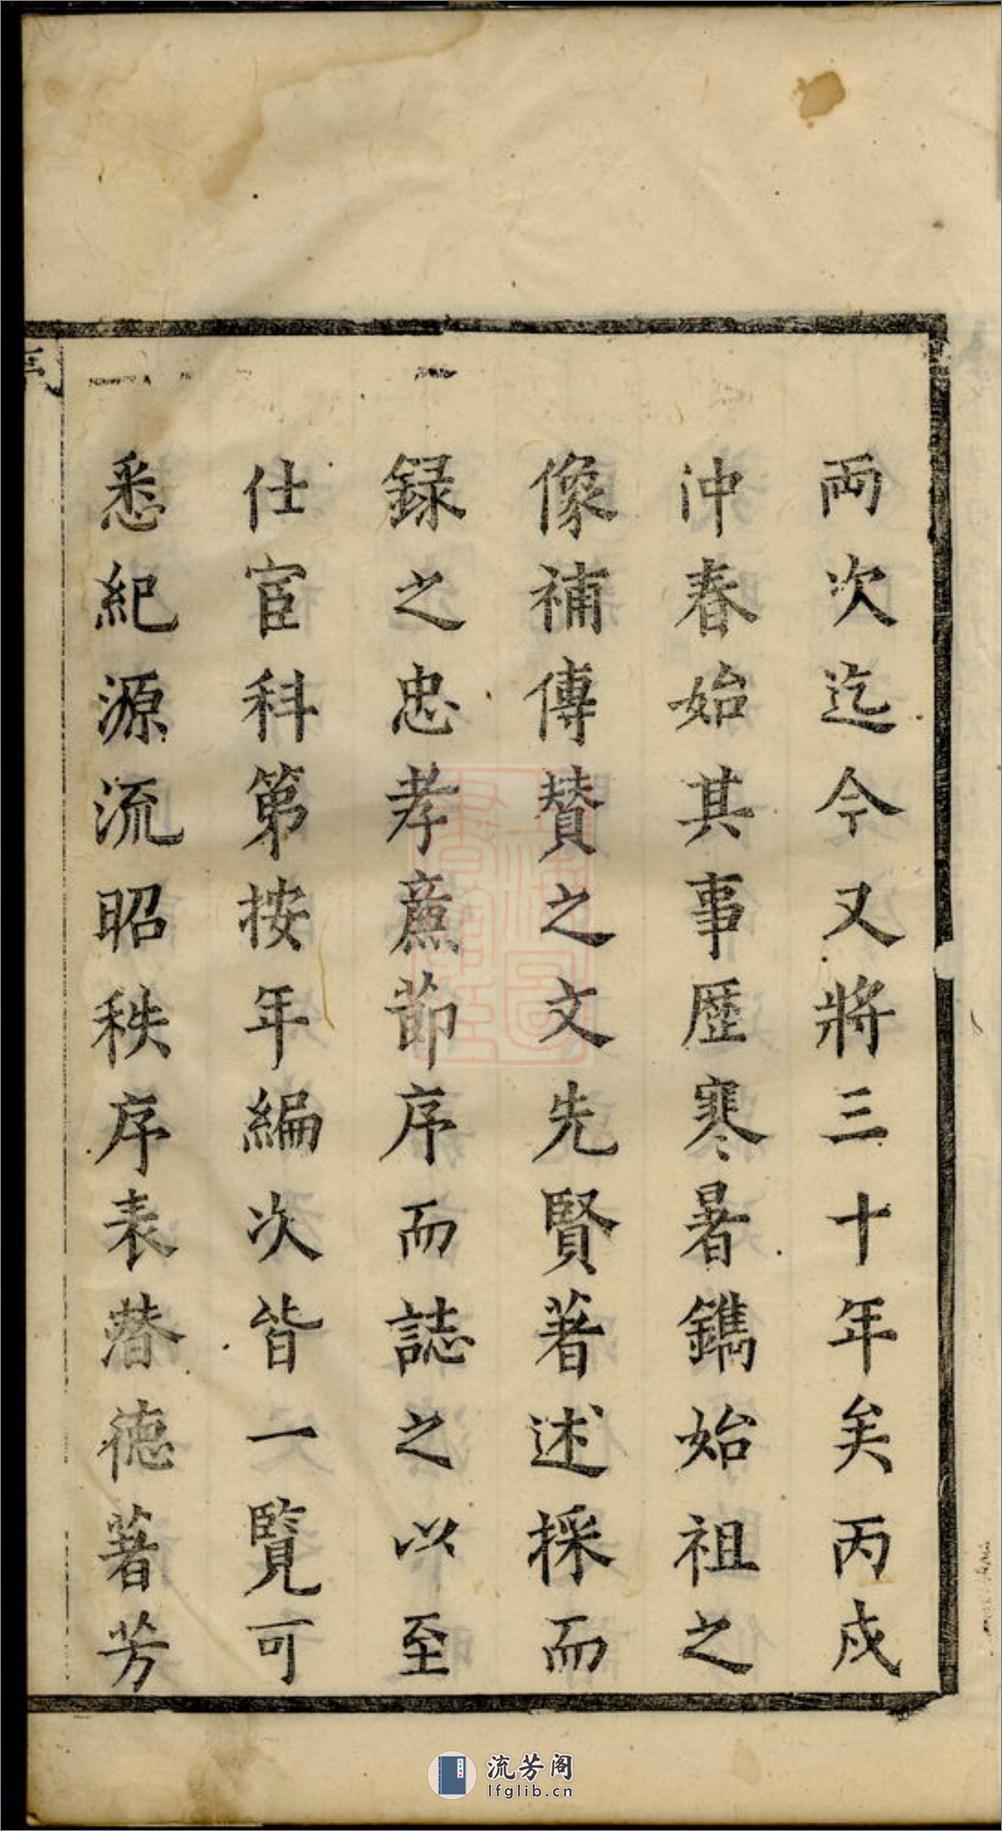 兩次迄今又將三十年矣丙戍
沖春始其事歷寒暑鐫始祖之
像補傳贊之文先賢著述採而
録之忠孝廉節序而誌之以至
仕宦科第按年編次皆一覽可
悉紀源流昭秩序表潛德著芳
流芳阁
lfglib.cn